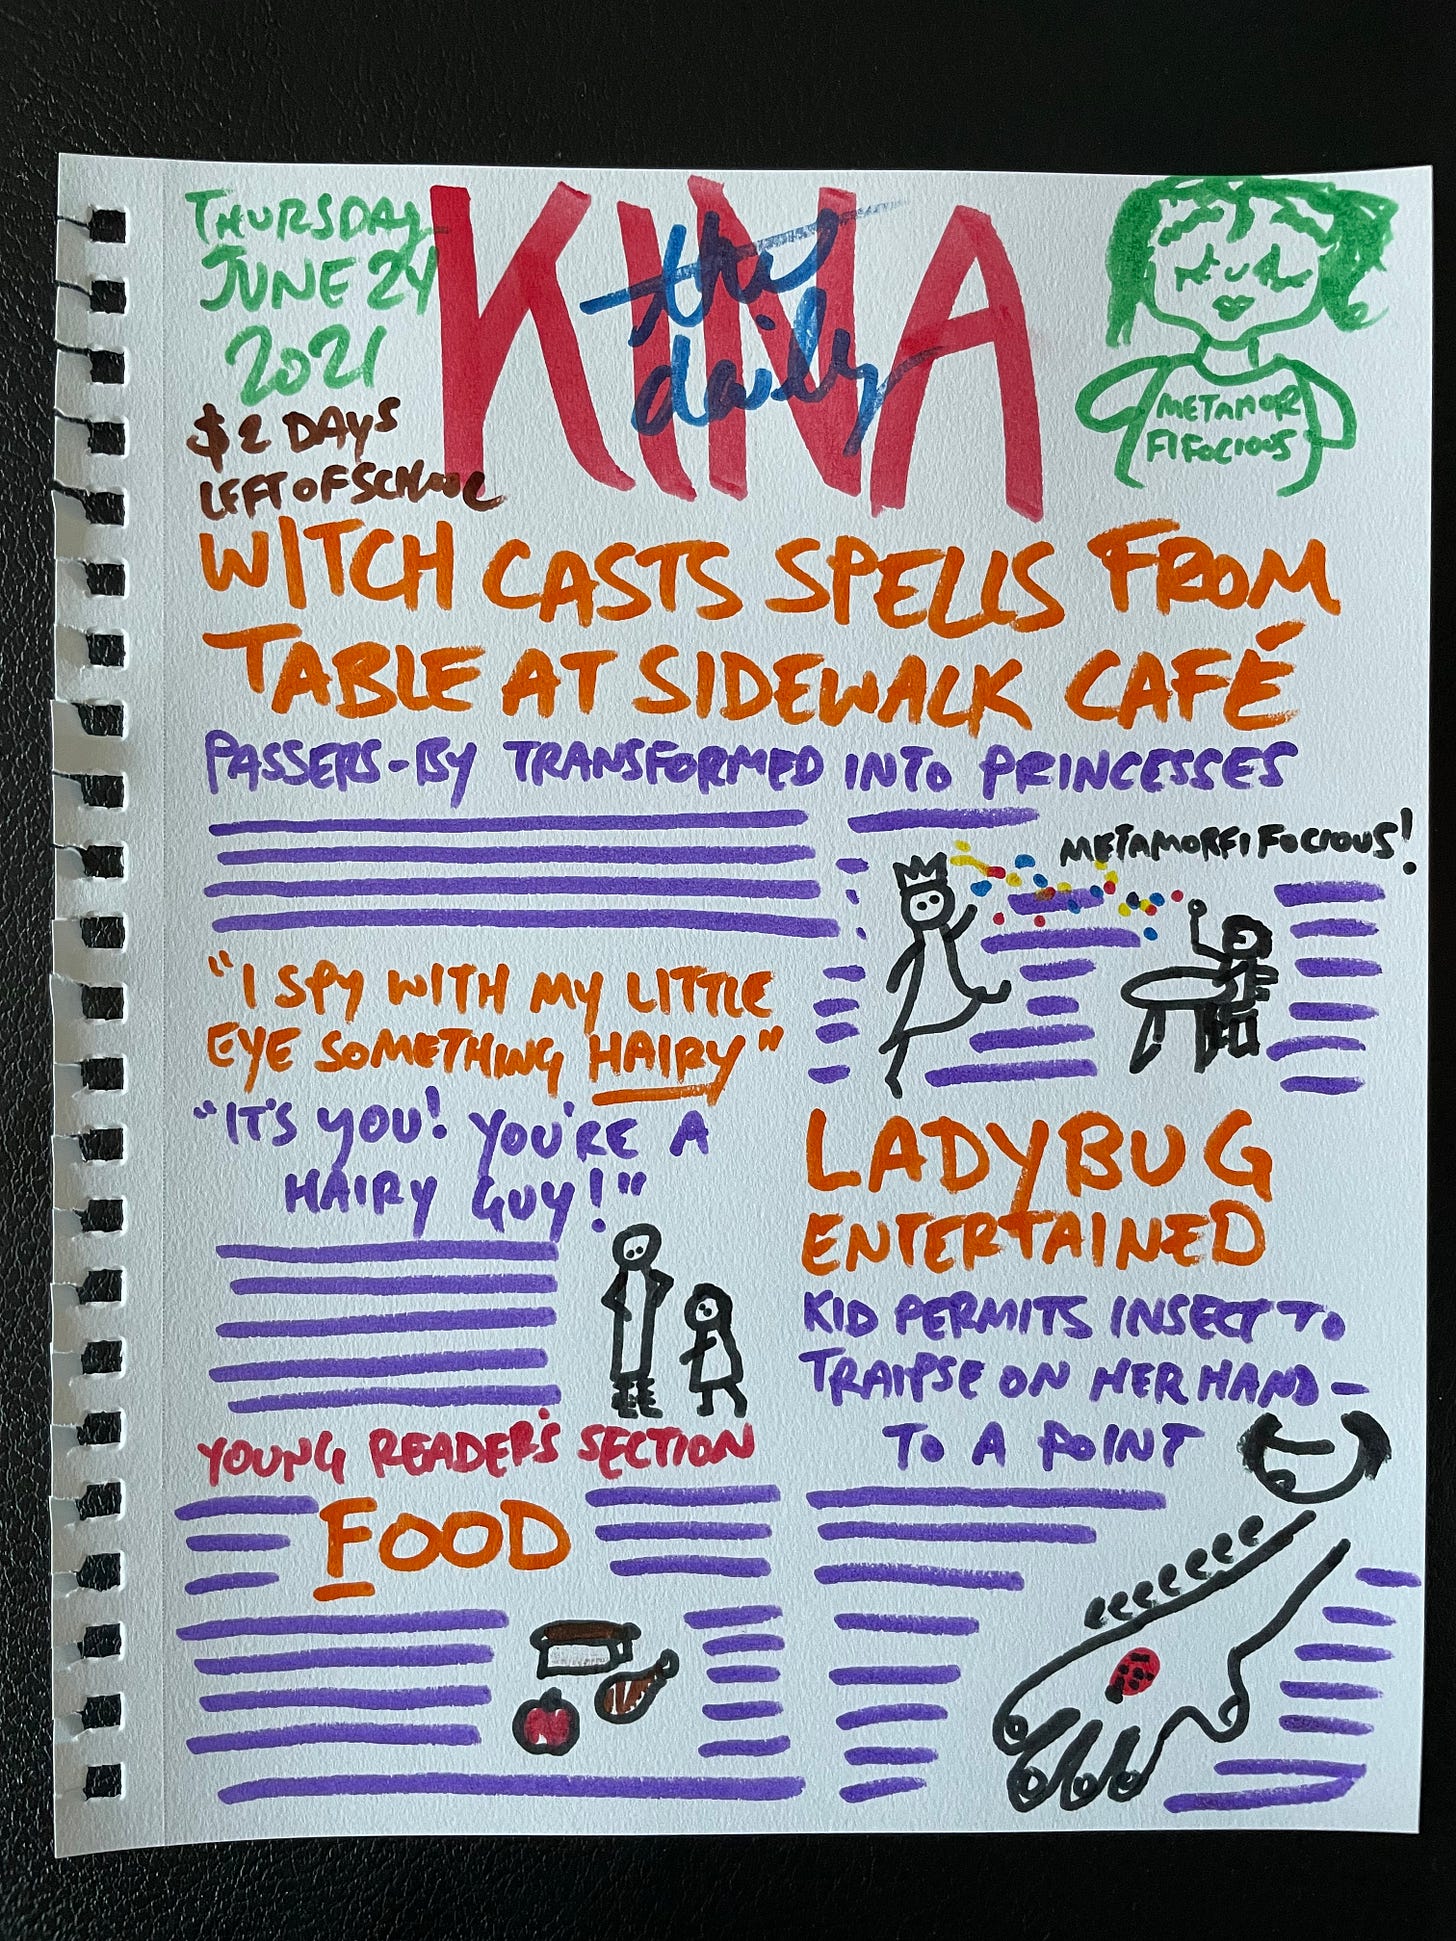 THURSDAY
JUNE 24
2021
$2 DAYS
LEFT OF SCHOOL
the
daily
KINA
METAMOR
FIFOCIOUS
WITCH CASTS SPELLS FROM
TABLE AT SIDEWALK CAFÉ
PASSERS-BY TRANSFORMED INTO PRINCESSES
METAMORFIFOCIOUS!
"I SPY WITH MY LITTLE
EYE SOMETHING HAIRY"
"IT'S YOU! YOU'RE A
HAIRY GUY!"
LADYBUG
ENTERTAINED
KID PERMITS INSECT TO
TRAIPSE ON HER HAND-
TO A POINT
YOUNG READER'S SECTION
FOOD